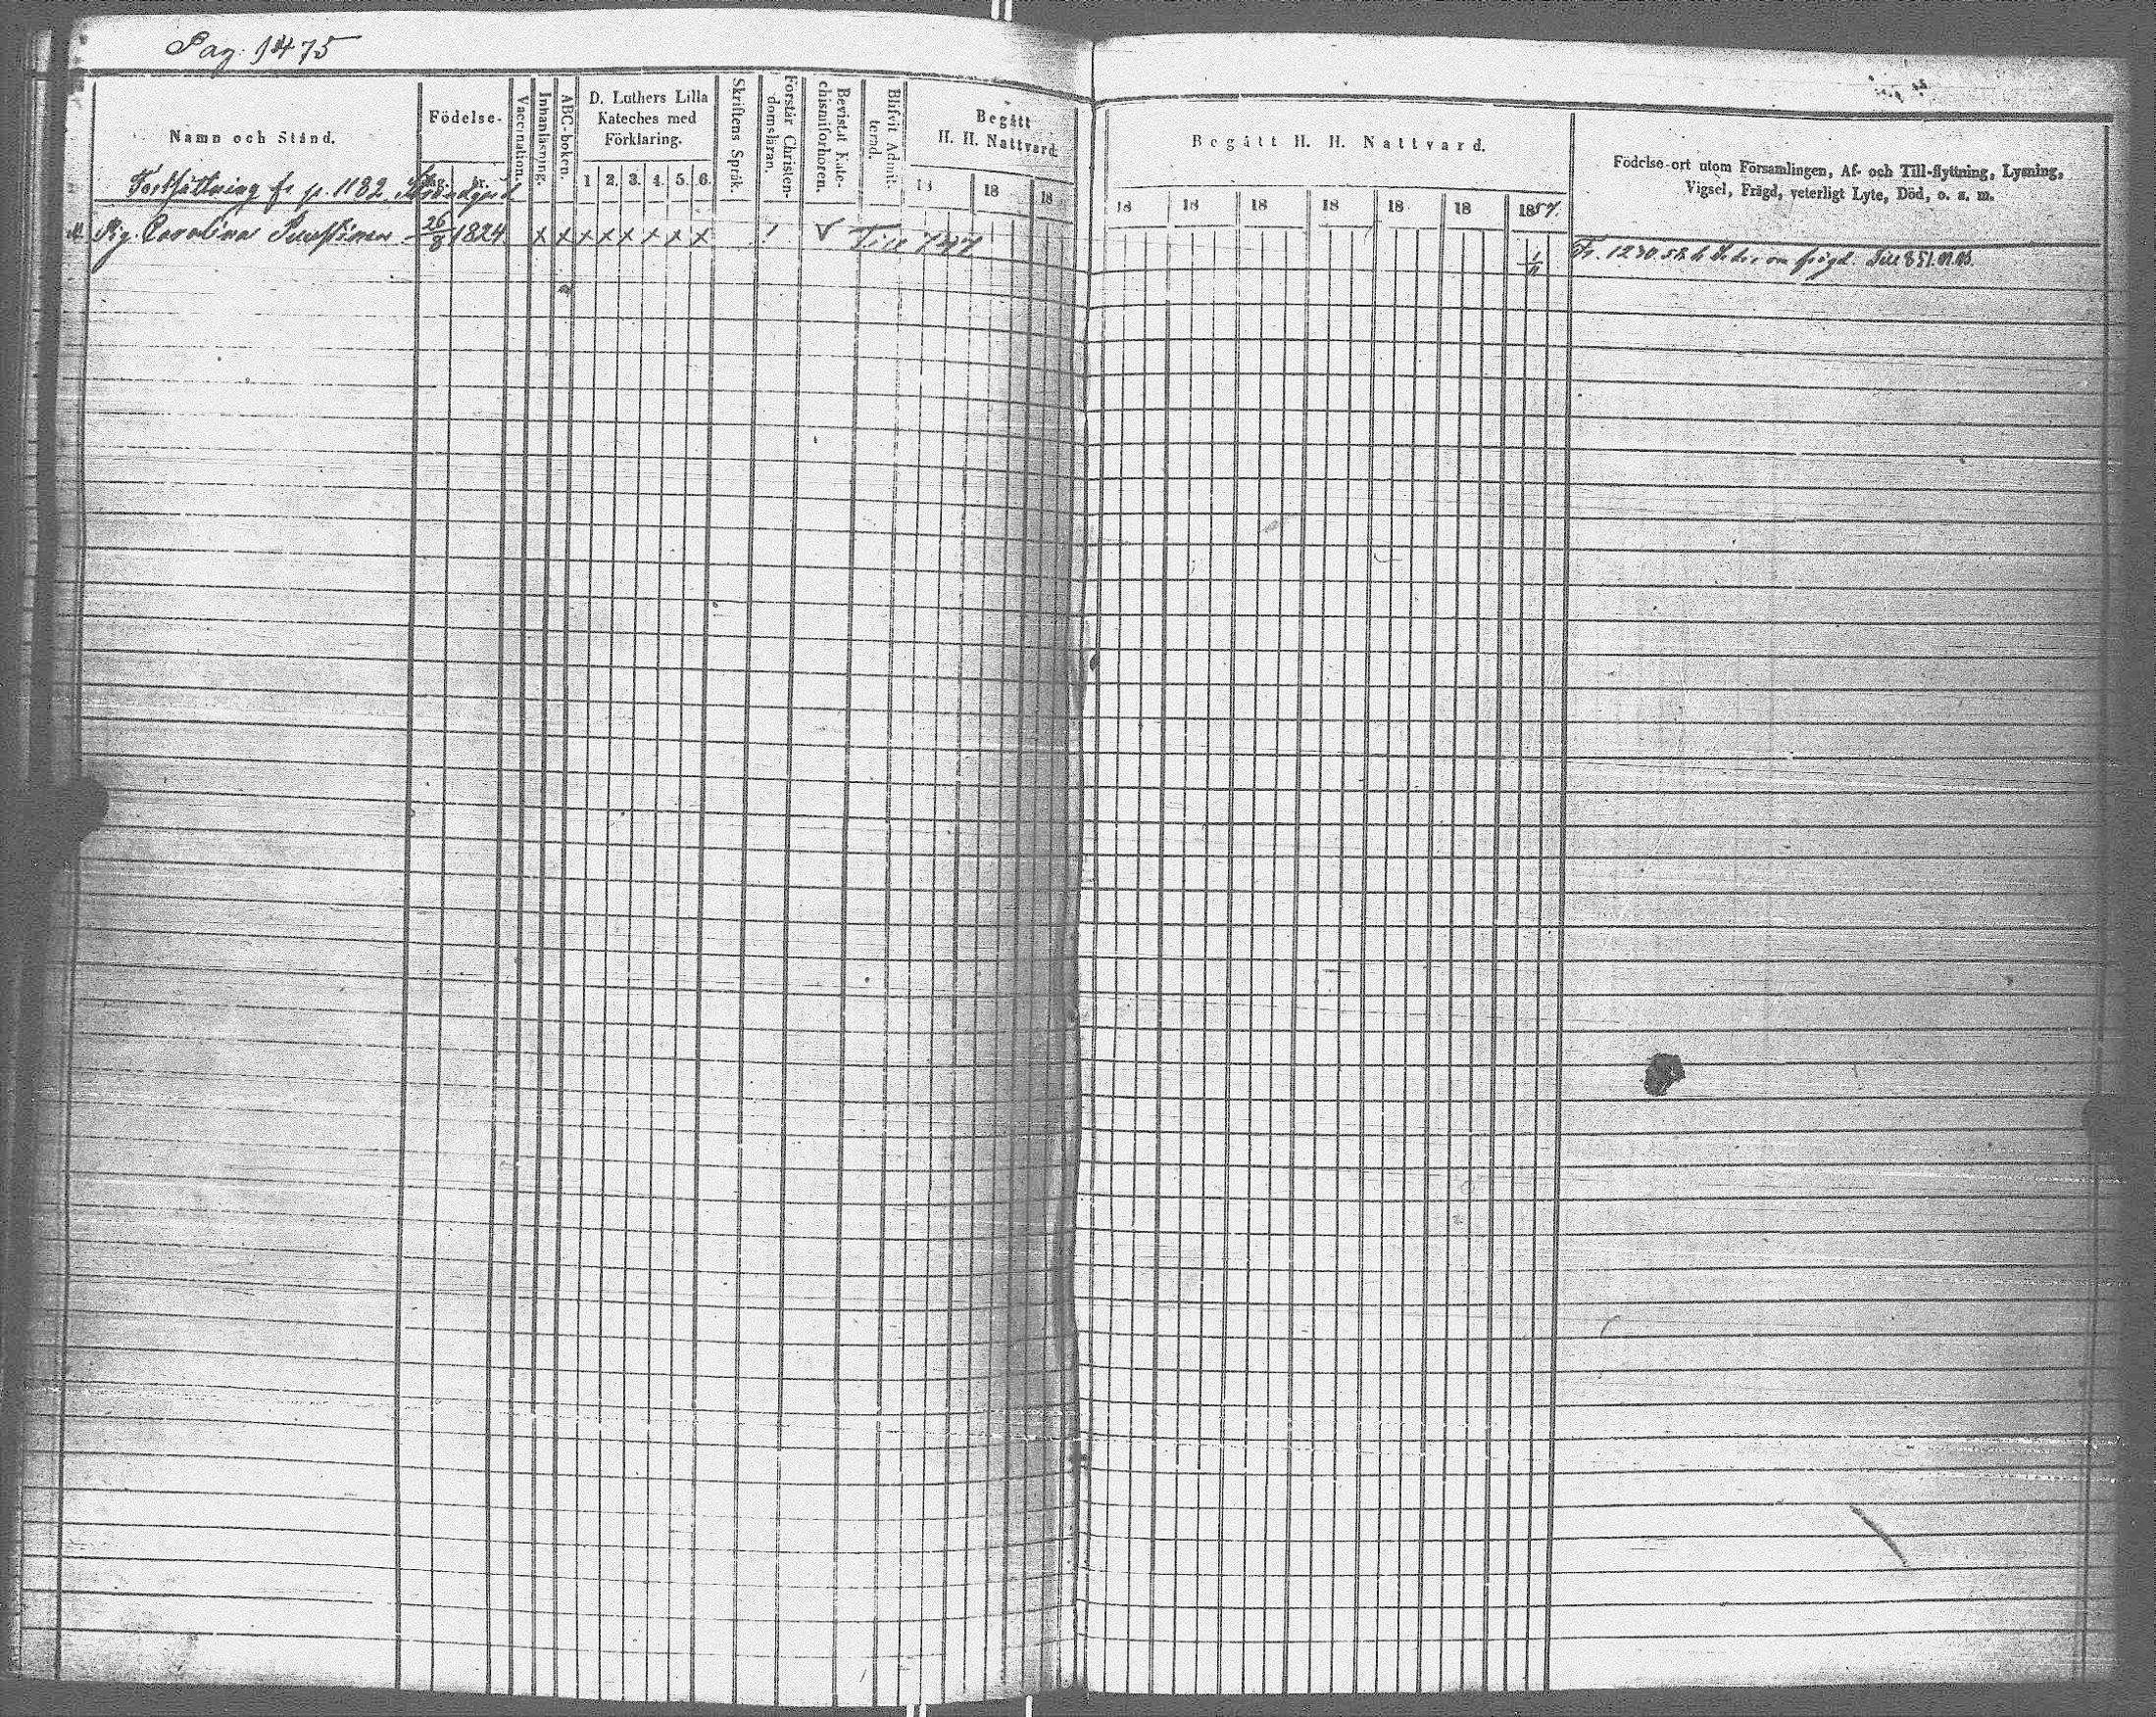 Pag. 1475
Namn och Stånd.
Födelse-
dag. år.
Vaccination.
Innanläsning.
ABC-boken.
D. Luthers Lilla
Kateches med
Förklaring.
1 2. 3. 4. 5. 6.
Skriftens Språk.
Förstår Christen-
domsläran.
Bevistat Kate-
chismiförhoren.
Blifvit Admit-
terad.
Begått
H. H. Nattvard.
18 18 18
Fortsättning fr p. 1182
Pig. Carolina 26/8 1824 x x x x x x x x Till 747
Begått H. H. Nattvard.
18 18 18 18 18 18 1857.
Födelse-ort utom Församlingen, Af- och Till-flyttning, Lysning,
Vigsel, Frägd, veterligt Lyte, Död, o. s. m.
Fr. 1230 om frägd. Till 851